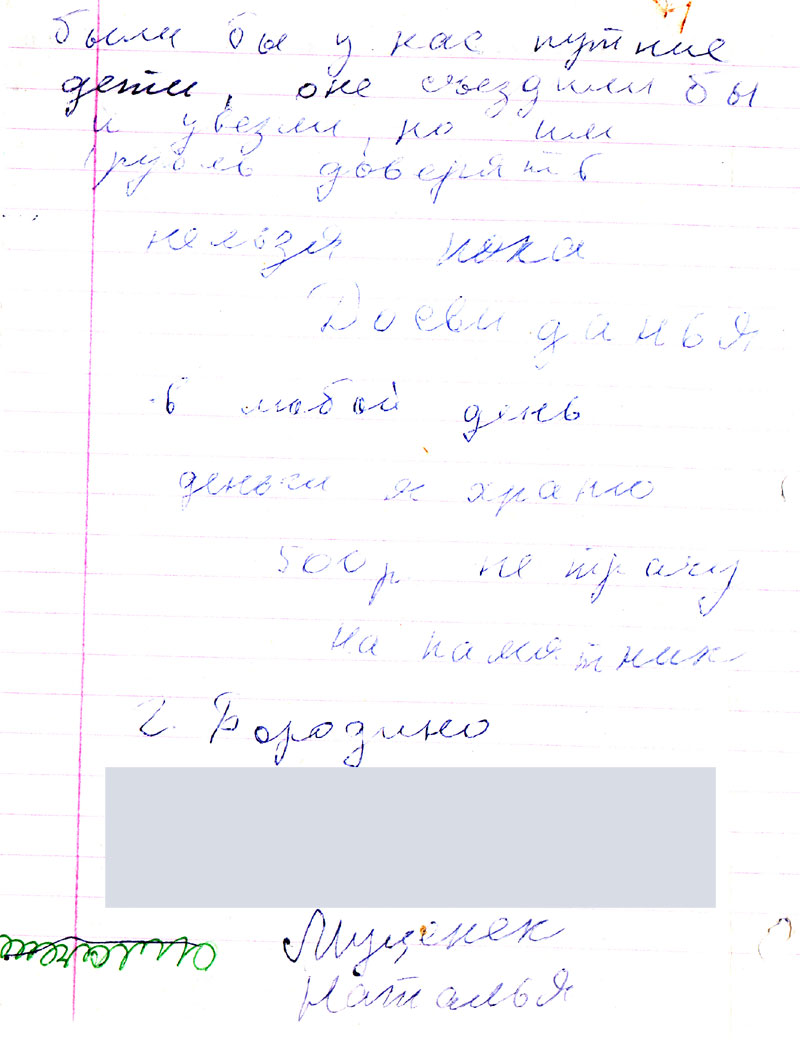 были бы у нас путние
дети, оне съездили бы
и увезли, но им
рубль доверять
нельзя пока
Досвиданья
в любой день
деньги я храню
500 р не трачу
на памятник
г. Бородино
Мущенек
Наталья